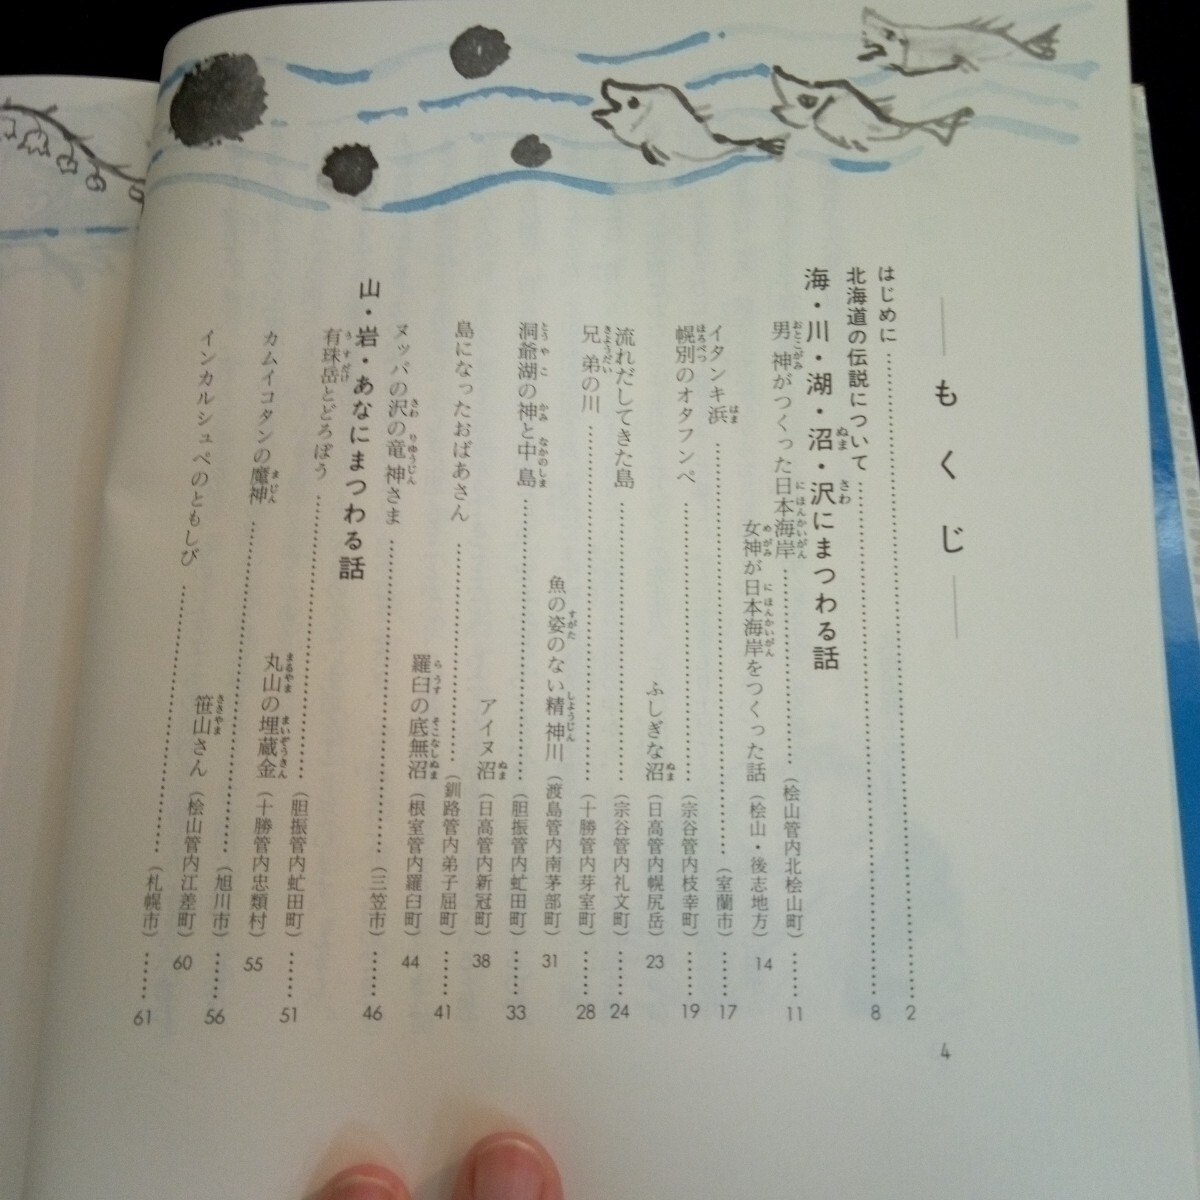 もくじ
はじめに……2
北海道の伝説について……8
海・川・湖・沼・沢にまつわる話
男神がつくった日本海岸……(桧山管内北桧山町)……11
女神が日本海岸をつくった話(桧山・後志地方) 14
イタンキ浜……(室蘭市)……17
幌別のオタフンベ……(宗谷管内枝幸町)……19
ふしぎな沼(日高管内幌尻岳) 23
流れだしてきた島……(宗谷管内礼文町)……24
兄弟の川……(十勝管内芽室町)……28
魚の姿のない精神川(渡島管内南茅部町) 31
洞爺湖の神と中島……(胆振管内虻田町)……33
アイヌ沼(日高管内新冠町) 38
島になったおばあさん……(釧路管内弟子屈町)……41
羅臼の底無沼(根室管内羅臼町) 44
ヌッパの沢の竜神さま……(三笠市)……46
山・岩・あなにまつわる話
有珠岳とどろぼう……(胆振管内虻田町)……51
丸山の埋蔵金(十勝管内忠類村) 55
カムイコタンの魔神……(旭川市)……56
笹山さん(桧山管内江差町) 60
インカルシュペのともしび……(札幌市)……61
4